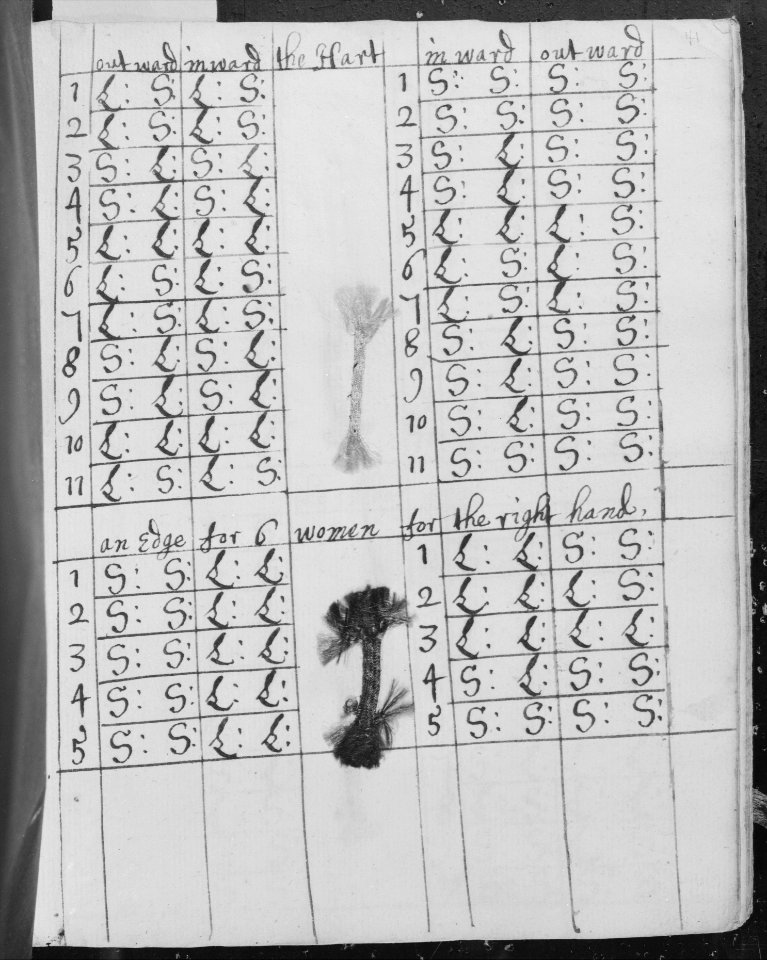 out ward in ward the Hart in ward out ward
1 L: S: L: S: 1 S: S: S: S:
2 L: S: L: S: 2 S: S: S: S:
3 S: L: S: L: 3 S: L: S: S:
4 S: L: S: L: 4 S: L: S: S:
5 L: L: L: L: 5 L: L: L: S:
6 L: S: L: S: 6 L: S: L: S:
7 L: S: L: S: 7 L: S: L: S:
8 S: L: S: L: 8 S: L: S: S:
9 S: L: S: L: 9 S: L: S: S:
10 L: L: L: L: 10 S: L: S: S:
11 L: S: L: S: 11 S: S: S: S:
an Edge for 6 women for the right hand,
1 S: S: L: L: 1 L: L: S: S:
2 S: S: L: L: 2 L: L: L: S:
3 S: S: L: L: 3 L: L: L: L:
4 S: S: L: L: 4 S: L: S: S:
5 S: S: L: L: 5 S: S: S: S: